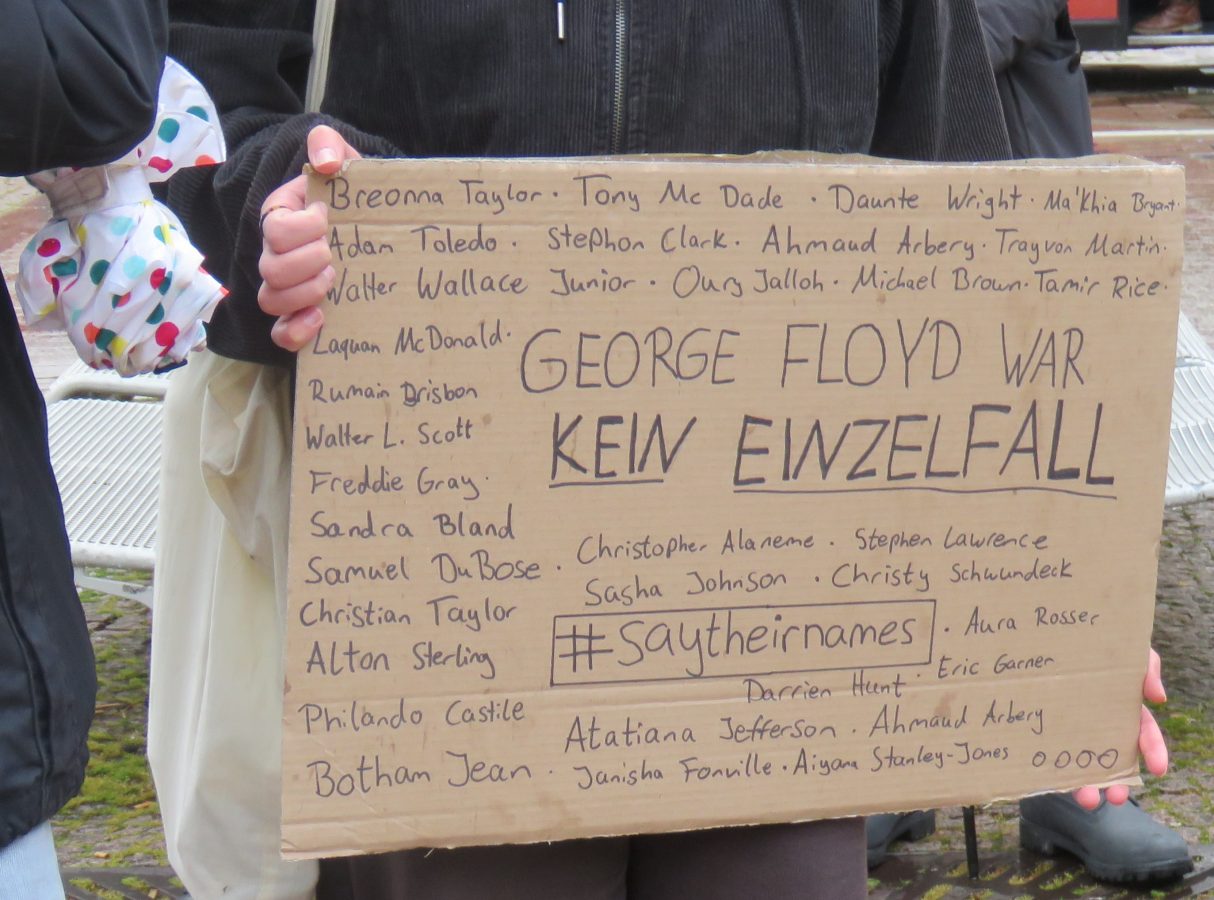 Breonna Taylor · Tony Mc Dade · Daunte Wright · Ma'Khia Bryant ·
Adam Toledo · Stephon Clark · Ahmaud Arbery · Trayvon Martin ·
Walter Wallace Junior · Oury Jalloh · Michael Brown · Tamir Rice ·
Laquan McDonald ·
GEORGE FLOYD WAR
KEIN EINZELFALL
Rumain Brisbon
Walter L. Scott
Freddie Gray ·
Sandra Bland
Samuel DuBose ·
Christian Taylor
Alton Sterling
Philando Castile
Botham Jean ·
Christopher Alaneme · Stephen Lawrence
Sasha Johnson · Christy Schwundeck
#saytheirnames · Aura Rosser
Darrien Hunt · Eric Garner
Atatiana Jefferson · Ahmaud Arbery
Janisha Fonville · Aiyana Stanley-Jones oooo